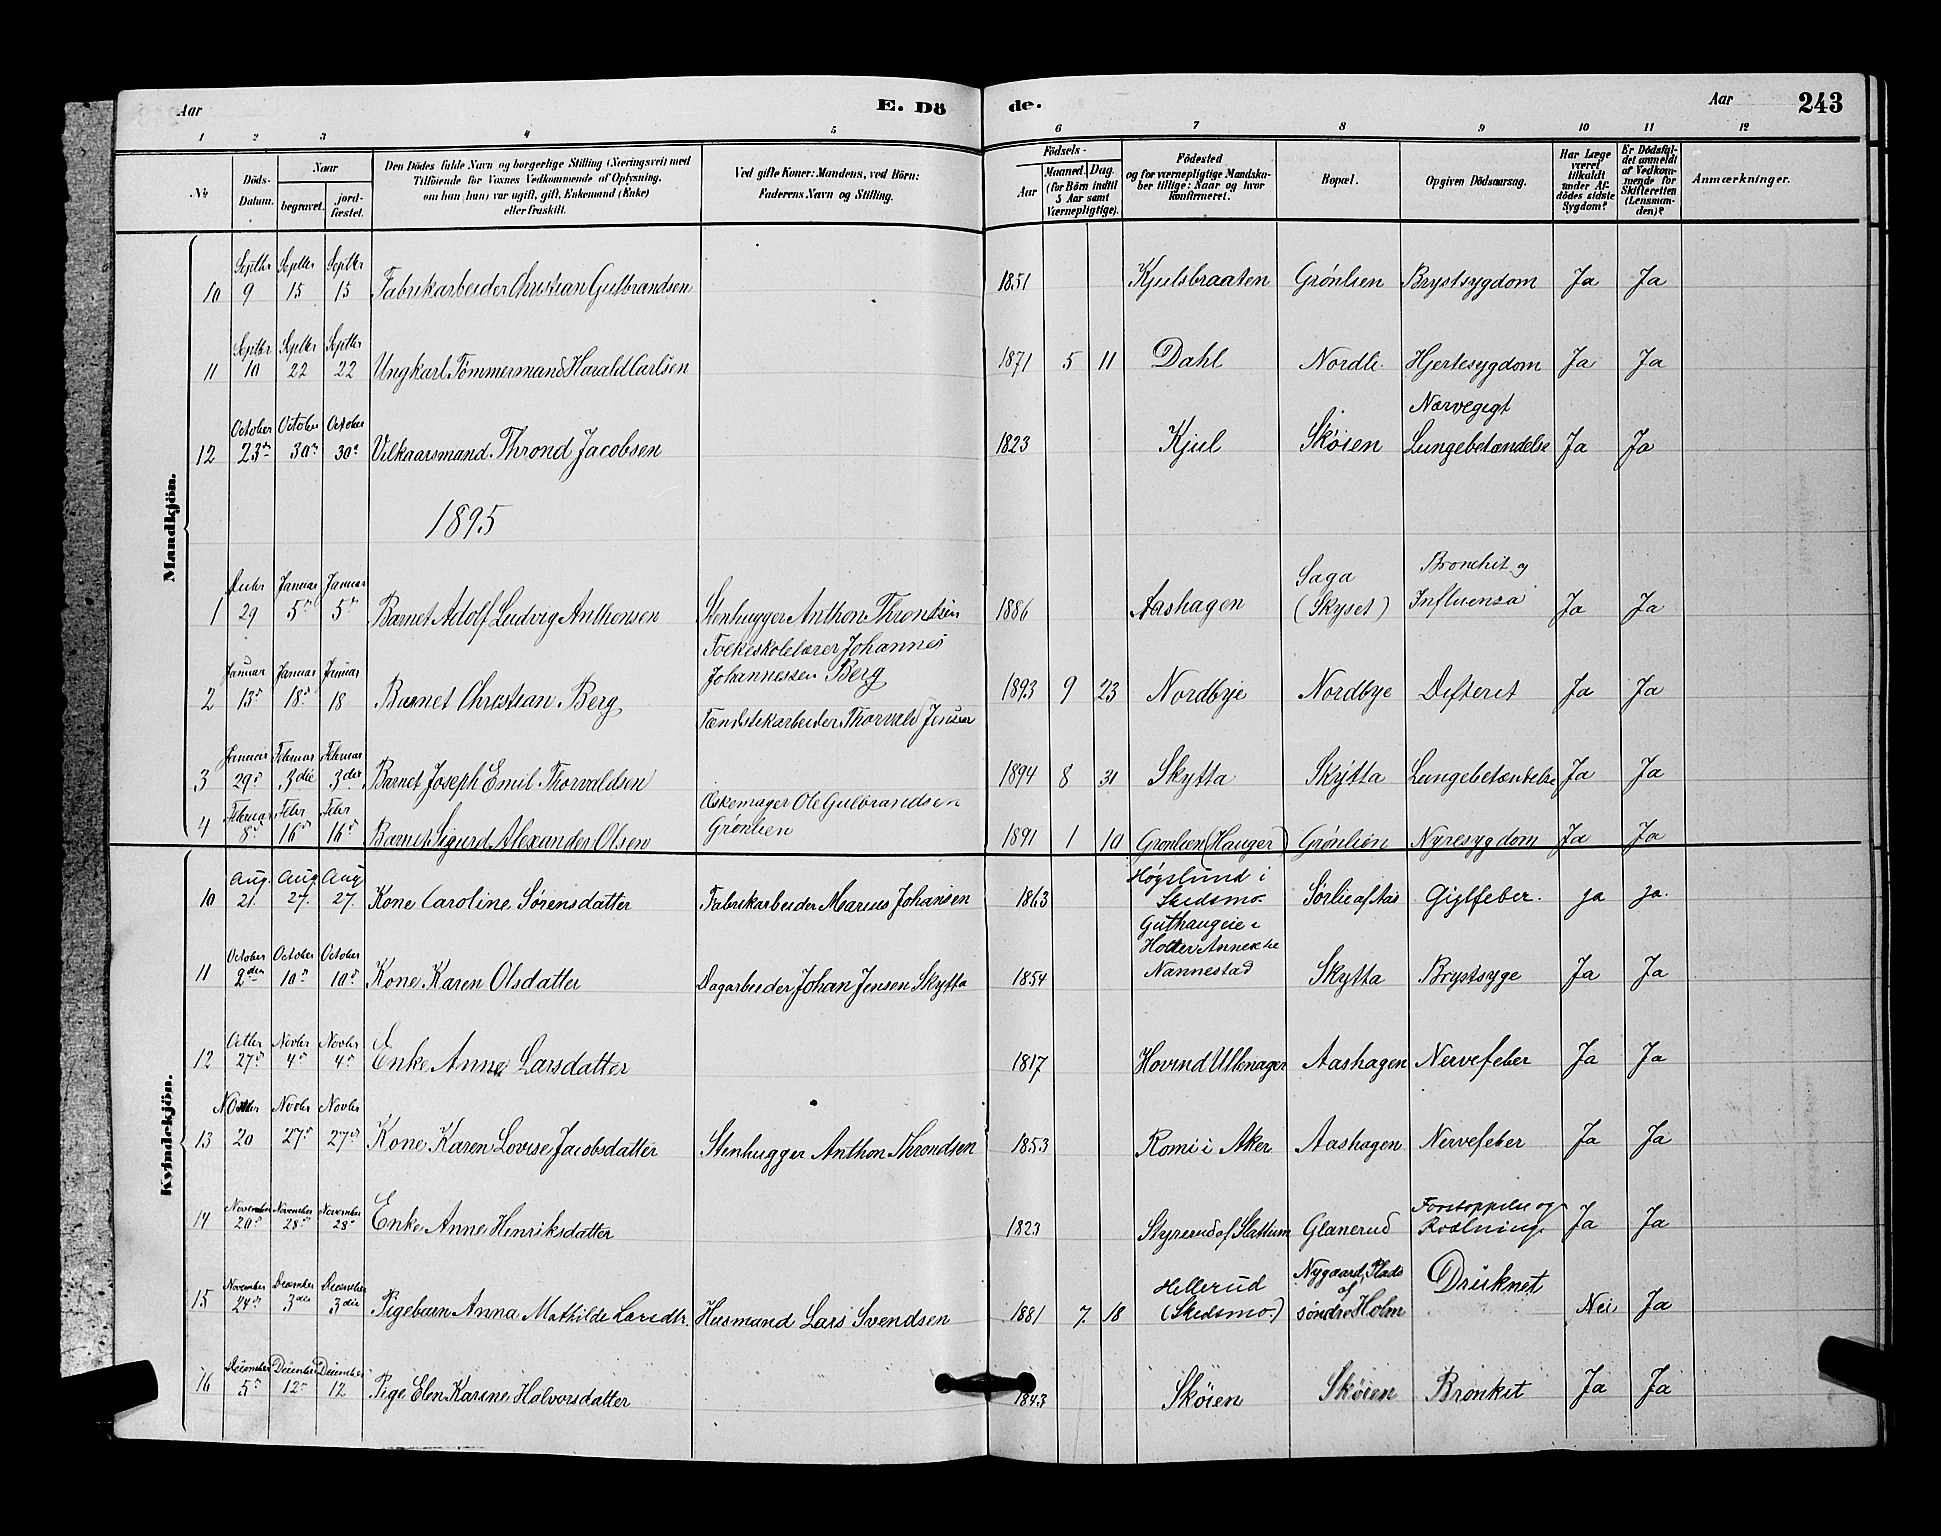 Aar
E. Dö
de.
Aar
243
1 2 3 4 5 6 7 8 9 10 11 12
No
Döds-
Datum.
Naar
begravet.
jord-
fæstet.
Den Dödes fulde Navn og borgerlige Stilling (Næringsvei) med
Tilföiende för Voxnes Vedkommende af Oplysning,
om han (hun) var ugift, gift, Enkemand (Enke)
eller fraskilt.
Ved gifte Koner: Mandens, ved Börn:
Faderens Navn og Stilling.
Födsels-
Aar
Maaned. Dag.
(for Börn indtil
5 Aar samt
Værnepligtige).
Födested
og for værnepligtige Mandska-
ber tillige: Naar og hvor
konfirmeret.
Bopæl.
Opgiven Dödsaarsag.
Har Læge
været
tilkaldt
under Af-
dödes sidste
Sygdom?
Er Dödsfal-
det anmeldt
af Vedkom-
mende for
Skifteretten
(Lensman-
den)?
Anmærkninger.
Mandkjön.
Septbr Septbr Septbr
10 9 15 15 Fabrikarbeider Christian Gulbrandsen 1851 Kjulsbraaten Grönlien Brystsygdom Ja Ja
Septbr Septbr Septbr
11 10 22 22 Ungkarl Tömmermand Harald Carlsen 1871 5 11 Dahl Nordli Hjertesygdom Ja Ja
October October October Nervegigt
12 23de 30de 30e Vilkaarsmand Thrond Jacobsen 1823 Kjul Sköien Lungebetændelse Ja Ja
1895
Decbr Januar Januar Saga Bronchit og
1 29 5de 5de Barnet Adolf Ludvig Anthonsen Stenhugger Anthon Throndsen 1886 Aashagen (Skyset) Influenza Ja Ja
Folkeskolelærer Johannes
Januar Januar Januar Johannessen Berg
2 13de 18de 18 Barnet Christian Berg 1893 9 23 Nordbye Nordbye Difterit Ja Ja
Tændstikarbeider Thorvald Jensen
Januar Februar Februar
3 29de 3die 3die Barnet Joseph Emil Thorvaldsen 1894 8 31 Skytta Skytta Lungebetændelse Ja Ja
Februar Febr Febr Æskemager Ole Gulbrandsen
4 8de 16de 16de Barnet Sigurd Alexander Olsen Grönlien 1891 1 10 Grönlien (Hauger) Grönlien Nyresygdom Ja Ja
Kvindekjön.
Aug. Aug. Aug. Högslund i
10 21. 27. 27. Kone Caroline Sörensdatter Fabrikarbeider Marius Johansen 1863 Skedsmo. Sörlie af Aas Giftfeber. ja ja.
Guthaugeie i
October October October Holter Annex til
11 2den 10de 10de Kone Karen Olsdatter Dagarbeider Johan Jensen Skytta 1854 Nannestad Skytta Brystsyge Ja Ja
Octbr Novbr Novbr
12 27de 4de 4de Enke Anne Larsdatter 1817 Hovind Ullensager Aashagen Nervefeber Ja Ja
Novbr Novbr Novbr
13 20 27de 27de Kone Karen Lovise Jacobsdatter Stenhugger Anthon Throndsen 1853 Romi i Aker Aashagen Nervefeber Ja Ja
November November November Forstoppelse og
14 20de 28de 28de Enke Anne Henriksdatter 1823 Styrerud af Slattum Glanerud Ja Ja
November December December Hellerud Nygaard, Plads af
15 24de 3die 3die Pigebarn Anna Mathilde Larsdtr. Husmand Lars Svendsen 1881 7. 18 (Skedsmo.) söndre Holm Druknet Nei Ja
December December December
16 5de 12te 12 Pige Elen Karine Halvorsdatter 1843 Sköien Sköien Bronkit Ja Ja